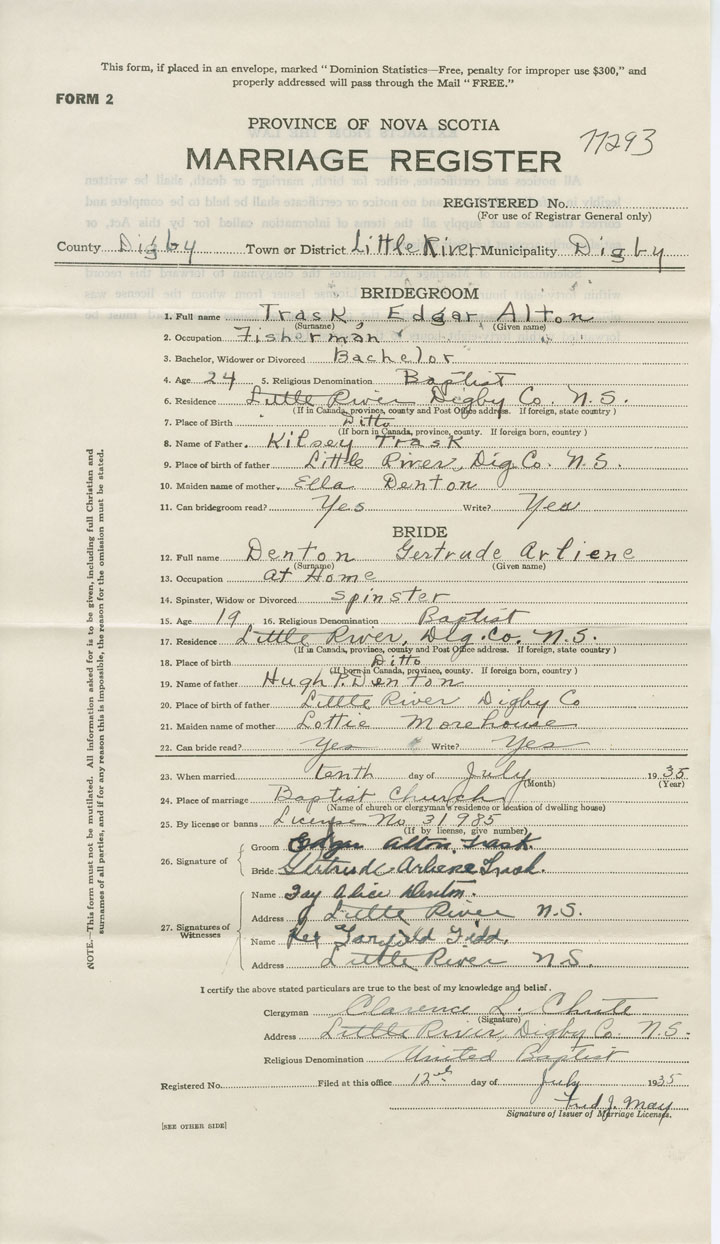 This form, if placed in an envelope, marked "Dominion Statistics—Free, penalty for improper use $300," and
properly addressed will pass through the Mail "FREE."
FORM 2
PROVINCE OF NOVA SCOTIA
77293
MARRIAGE REGISTER
REGISTERED No.
(For use of Registrar General only)
County Digby Town or District Little River Municipality Digby
BRIDEGROOM
1. Full name Trask, Edgar Alton
(Surname) (Given name)
2. Occupation Fisherman
3. Bachelor, Widower or Divorced Bachelor
4. Age 24 5. Religious Denomination Baptist
6. Residence Little River Digby Co. N.S.
(If in Canada, province, county and Post Office address. If foreign, state country)
7. Place of Birth Ditto
(If born in Canada, province, county. If foreign born, country)
8. Name of Father. Kilsey Trask
9. Place of birth of father Little River, Dig. Co. N.S.
10. Maiden name of mother. Ella Denton
11. Can bridegroom read? Yes Write? Yes
BRIDE
12. Full name Denton Gertrude Arliene
(Surname) (Given name)
13. Occupation at Home
14. Spinster, Widow or Divorced Spinster
15. Age 19 16. Religious Denomination Baptist
17. Residence Little River, Dig. Co. N.S.
(If in Canada, province, county and Post Office address. If foreign, state country)
18. Place of birth Ditto
(If born in Canada, province, county. If foreign born, country)
19. Name of father Hugh P. Denton
20. Place of birth of father Little River Digby Co
21. Maiden name of mother Lottie Morehouse
22. Can bride read? Yes Write? Yes
23. When married tenth day of July 1935
(Month) (Year)
24. Place of marriage Baptist Church
(Name of church or clergyman's residence or location of dwelling house)
25. By license or banns License No 31985
(If by license, give number)
26. Signature of
Groom Edgar Alton Trask.
Bride Gertrude Arliene Trask.
27. Signatures of Witnesses
Name Fay Alice Denton.
Address Little River N.S.
Name Rex Garfield Tidd.
Address Little River N.S.
I certify the above stated particulars are true to the best of my knowledge and belief.
Clergyman Clarence L. Chute
(Signature)
Address Little River, Digby Co. N.S.
Religious Denomination United Baptist
Registered No. Filed at this office 12th day of July 1935
Fred J. May
Signature of Issuer of Marriage Licenses.
[SEE OTHER SIDE]
NOTE.—This form must not be mutilated. All information asked for is to be given, including full Christian and
surnames of all parties, and if for any reason this is impossible, the reason for the omission must be stated.